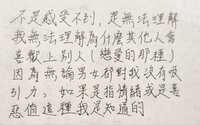 不是感受不到,是無法理解
我無法理解為什麼其他人會
喜歡上別人(戀愛的那種)
因為無論男女都對我沒有吸
引力。如果是指情緒我是善
惡值這種我是知道的